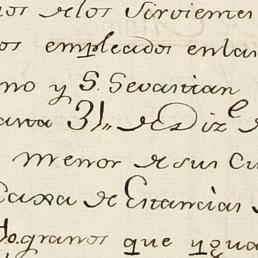 os de los Sirvientes
os empleados en las
no y S. Sevastian
ana 31,, de Diz.e d
menor de sus Cu
Caxa de Estancias
do. granos que ygua